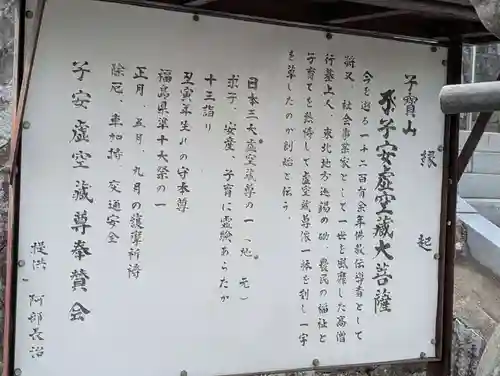 子寶山 縁起
子安虚空蔵大菩薩
今を遡る一千二百有余年佛教伝導者として
将又、社会事業家として一世を風靡した高僧
行基上人、東北地方巡錫の砌、農民の福祉と
子育てを熱祷して虚空蔵尊像一躰を刻し一宇
を草したのが創始と伝う。
日本三大虚空蔵尊の一、(地元)
求子、安産、子育に霊験あらたか
十三詣り
丑寅年生れの守本尊
福島県準十大祭の一
正月、五月、九月の護摩祈祷
除厄、車加持、交通安全
子安虚空蔵尊奉賛会
提供 阿部長治